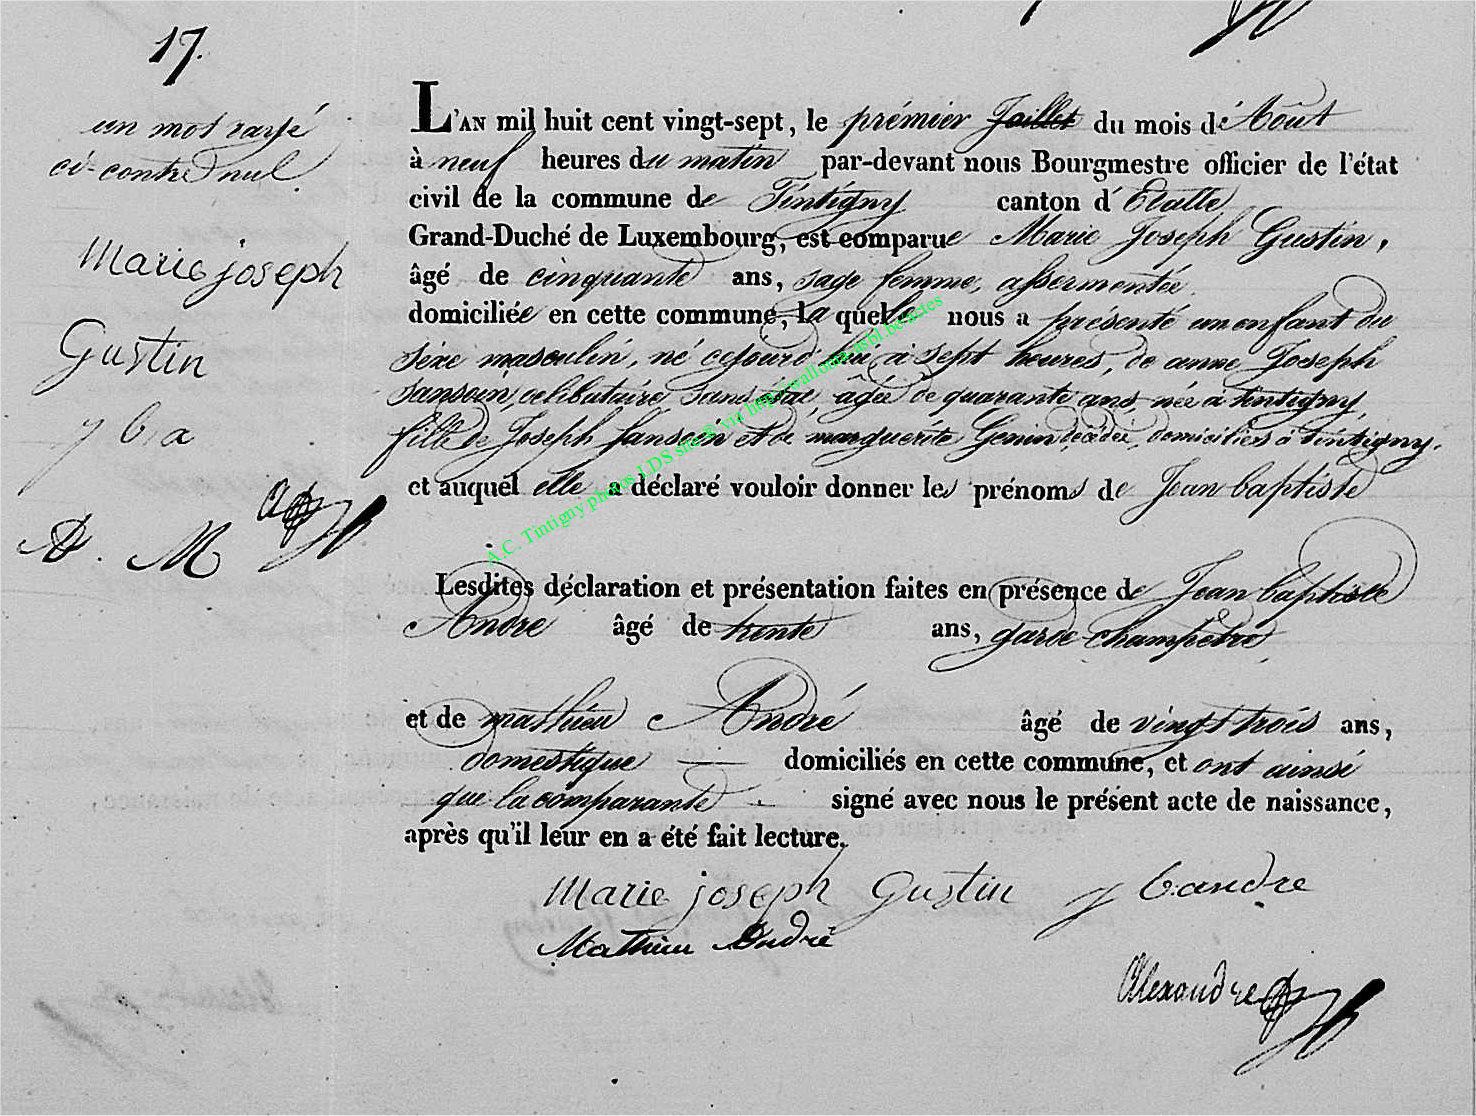 17.
un mot rayé
ci-contre nul.
Marie joseph
Gustin
j b a
A. M
L'AN mil huit cent vingt-sept, le prémier Juillet du mois d'Août
à neuf heures du matin par-devant nous Bourgmestre officier de l'état
civil de la commune de Tintigny canton d'Etalle
Grand-Duché de Luxembourg, est comparue Marie Joseph Gustin,
âgé de cinquante ans, sage femme, assermentée,
domiciliée en cette commune, la quelle nous a présenté un enfant du
sèxe masculin, né cejourd'hui, à sept heures, de anne Joseph
Sansoin, celibataire sans état, âgée de quarante ans, née à tintigny,
fille de Joseph Sansoin et de marguerite Genin, décédée, domiciliés à Tintigny.
et auquel elle a déclaré vouloir donner les prénoms de Jean baptiste
Lesdites déclaration et présentation faites en présence de Jean baptiste
André âgé de trente ans, garde champêtre,
et de mathieu André âgé de vingt trois ans,
domestique — domiciliés en cette commune, et ont ainsi
que la comparante signé avec nous le présent acte de naissance,
après qu'il leur en a été fait lecture.
Marie joseph Gustin j b. andre
Mathieu André
Alexandre
A.C. Tintigny photos LDS site® via http://wallonia.asbl.be/actes